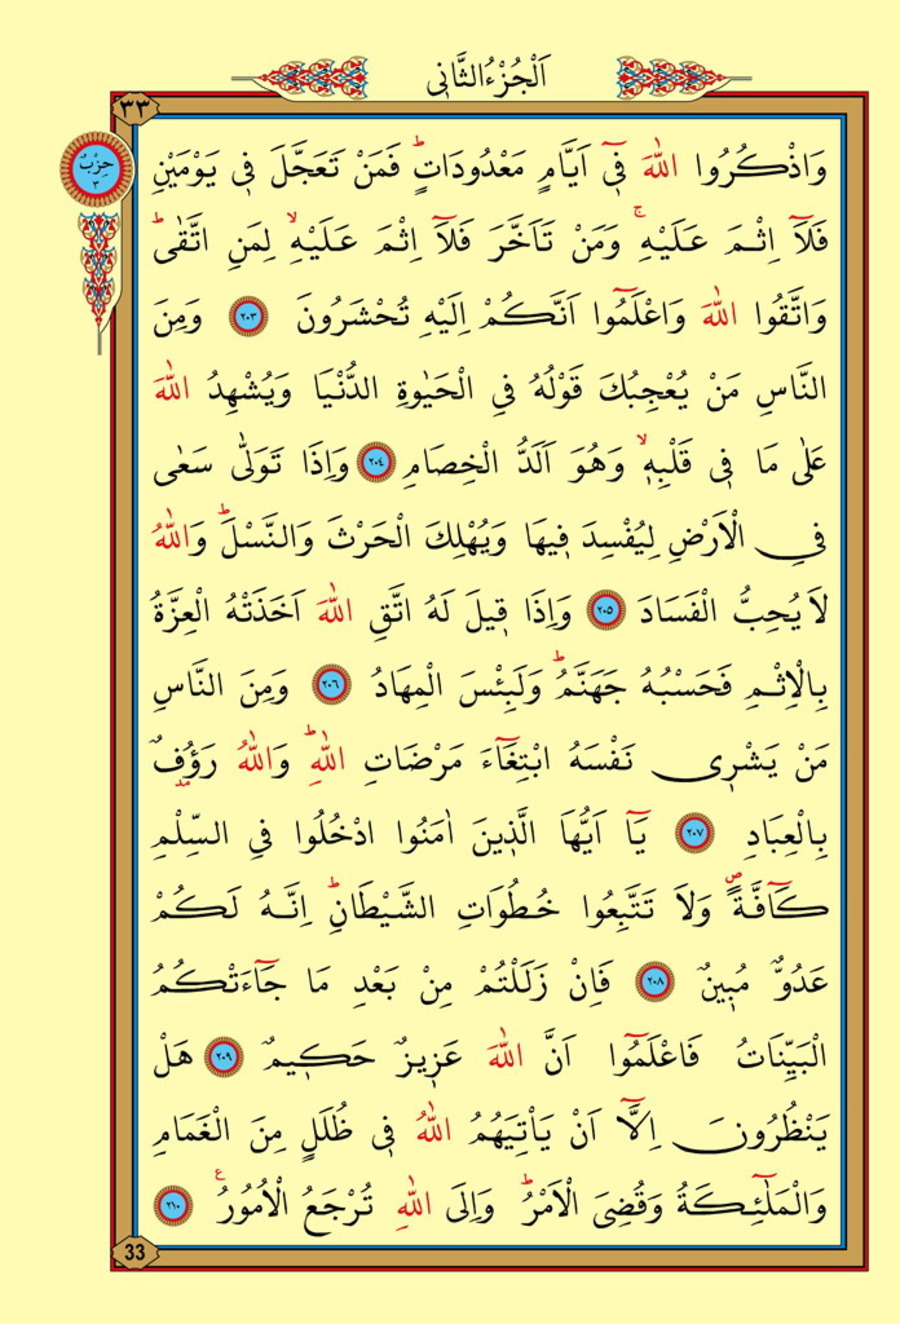 اَلْجُزْءُ الثَّانٖى
٣٣
حِزْبٌ
٣
وَاذْكُرُوا اللّٰهَ فٖٓى اَيَّامٍ مَعْدُودَاتٍؕ فَمَنْ تَعَجَّلَ فٖى يَوْمَيْنِ
فَلَٓا اِثْمَ عَلَيْهِۚ وَمَنْ تَاَخَّرَ فَلَٓا اِثْمَ عَلَيْهِۙ لِمَنِ اتَّقٰىؕ
وَاتَّقُوا اللّٰهَ وَاعْلَمُٓوا اَنَّكُمْ اِلَيْهِ تُحْشَرُونَ ﴿٢٠٣﴾ وَمِنَ
النَّاسِ مَنْ يُعْجِبُكَ قَوْلُهُ فِى الْحَيٰوةِ الدُّنْيَا وَيُشْهِدُ اللّٰهَ
عَلٰى مَا فٖى قَلْبِهٖۙ وَهُوَ اَلَدُّ الْخِصَامِ ﴿٢٠٤﴾ وَاِذَا تَوَلّٰى سَعٰى
فِى الْاَرْضِ لِيُفْسِدَ فٖيهَا وَيُهْلِكَ الْحَرْثَ وَالنَّسْلَؕ وَاللّٰهُ
لَا يُحِبُّ الْفَسَادَ ﴿٢٠٥﴾ وَاِذَا قٖيلَ لَهُ اتَّقِ اللّٰهَ اَخَذَتْهُ الْعِزَّةُ
بِالْاِثْمِ فَحَسْبُهُ جَهَنَّمُؕ وَلَبِئْسَ الْمِهَادُ ﴿٢٠٦﴾ وَمِنَ النَّاسِ
مَنْ يَشْرٖى نَفْسَهُ ابْتِغَٓاءَ مَرْضَاتِ اللّٰهِؕ وَاللّٰهُ رَؤُفٌ
بِالْعِبَادِ ﴿٢٠٧﴾ يَٓا اَيُّهَا الَّذٖينَ اٰمَنُوا ادْخُلُوا فِى السِّلْمِ
كَٓافَّةًࣕ وَلَا تَتَّبِعُوا خُطُوَاتِ الشَّيْطَانِؕ اِنَّهُ لَكُمْ
عَدُوٌّ مُبٖينٌ ﴿٢٠٨﴾ فَاِنْ زَلَلْتُمْ مِنْ بَعْدِ مَا جَٓاءَتْكُمُ
الْبَيِّنَاتُ فَاعْلَمُٓوا اَنَّ اللّٰهَ عَزٖيزٌ حَكٖيمٌ ﴿٢٠٩﴾ هَلْ
يَنْظُرُونَ اِلَّٓا اَنْ يَاْتِيَهُمُ اللّٰهُ فٖى ظُلَلٍ مِنَ الْغَمَامِ
وَالْمَلٰٓئِكَةُ وَقُضِىَ الْاَمْرُؕ وَاِلَى اللّٰهِ تُرْجَعُ الْاُمُورُࣖ ﴿٢١٠﴾
33